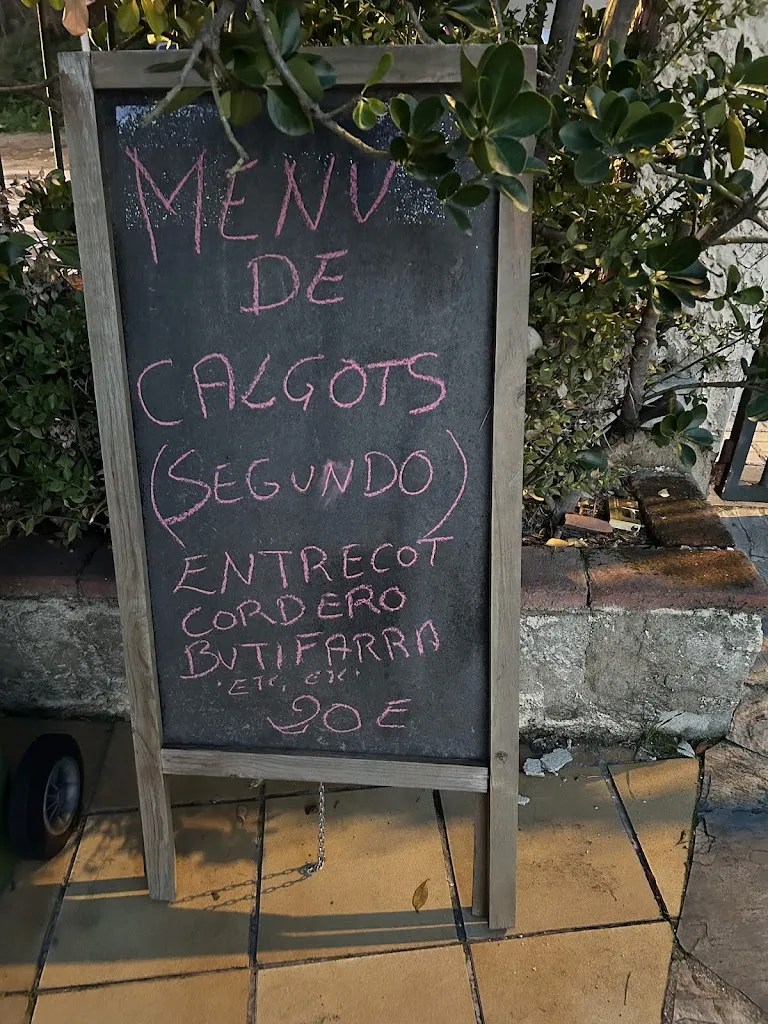 MENU
DE
CALGOTS
(SEGUNDO)
ENTRECOT
CORDERO
BUTIFARRA
ETC, ETC.
20 E